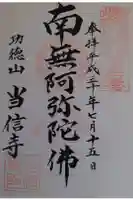 奉拝平成三十年七月十五日
南無阿弥陀佛
功徳山
当信寺